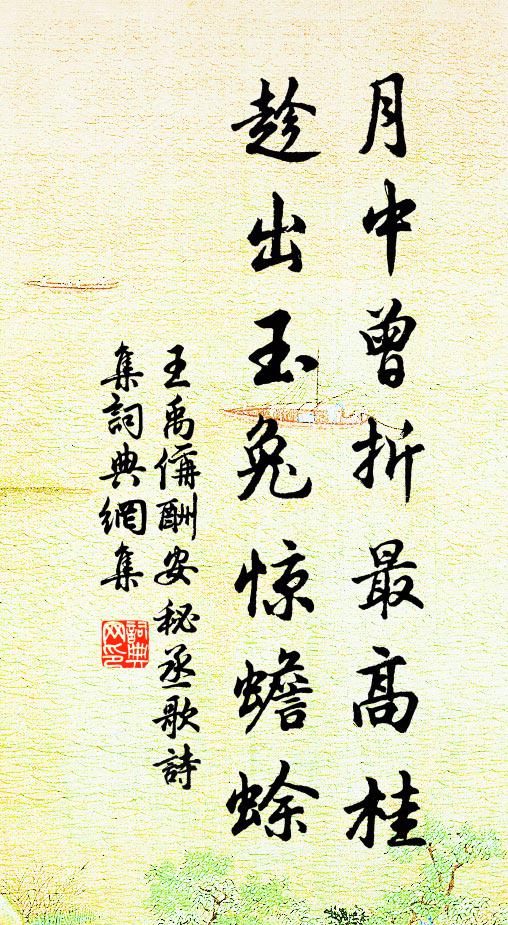 月中曾折最高桂
趁出玉兔惊蟾蜍
王禹偁酬安秘丞歌詩
集詞典網集
詞典网印